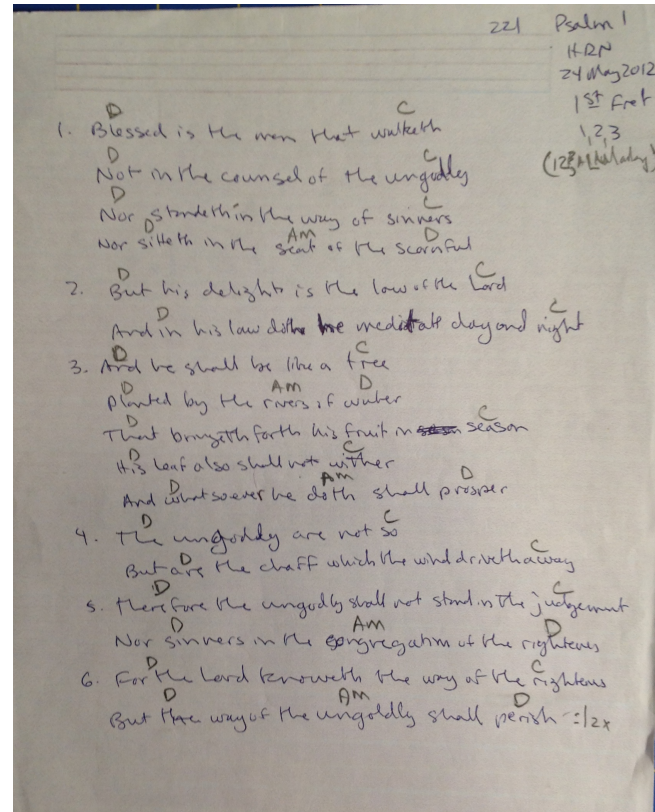 221 Psalm 1
HRN
24 May 2012
1st Fret
1, 2, 3
D C
1. Blessed is the man that walketh
D C
Not in the counsel of the ungodly
D C
Nor standeth in the way of sinners
D AM D
Nor sitteth in the seat of the scornful
D C
2. But his delight is the law of the Lord
D C
And in his law doth he meditate day and night
D C
3. And he shall be like a tree
D AM D
Planted by the rivers of water
D C
That bringeth forth his fruit in season
D C
His leaf also shall not wither
D AM D
And whatsoever he doth shall prosper
D C
4. The ungodly are not so
D C
But are the chaff which the wind driveth away
D C
5. Therefore the ungodly shall not stand in the judgement
D AM D
Nor sinners in the congregation of the righteous
D C
6. For the Lord knoweth the way of the righteous
D AM D
But the way of the ungoldly shall perish :/2x